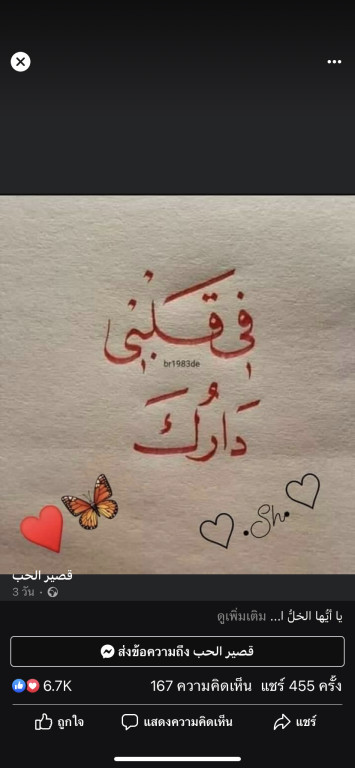 في قَلبْي
br1983de
دَارُك
.Sh.
قصير الحب
3 วัน ·
يا أيُّها الخلُّ ا... ดูเพิ่มเติม
ส่งข้อความถึง قصير الحب
6.7K 167 ความคิดเห็น แชร์ 455 ครั้ง
ถูกใจ แสดงความคิดเห็น แชร์